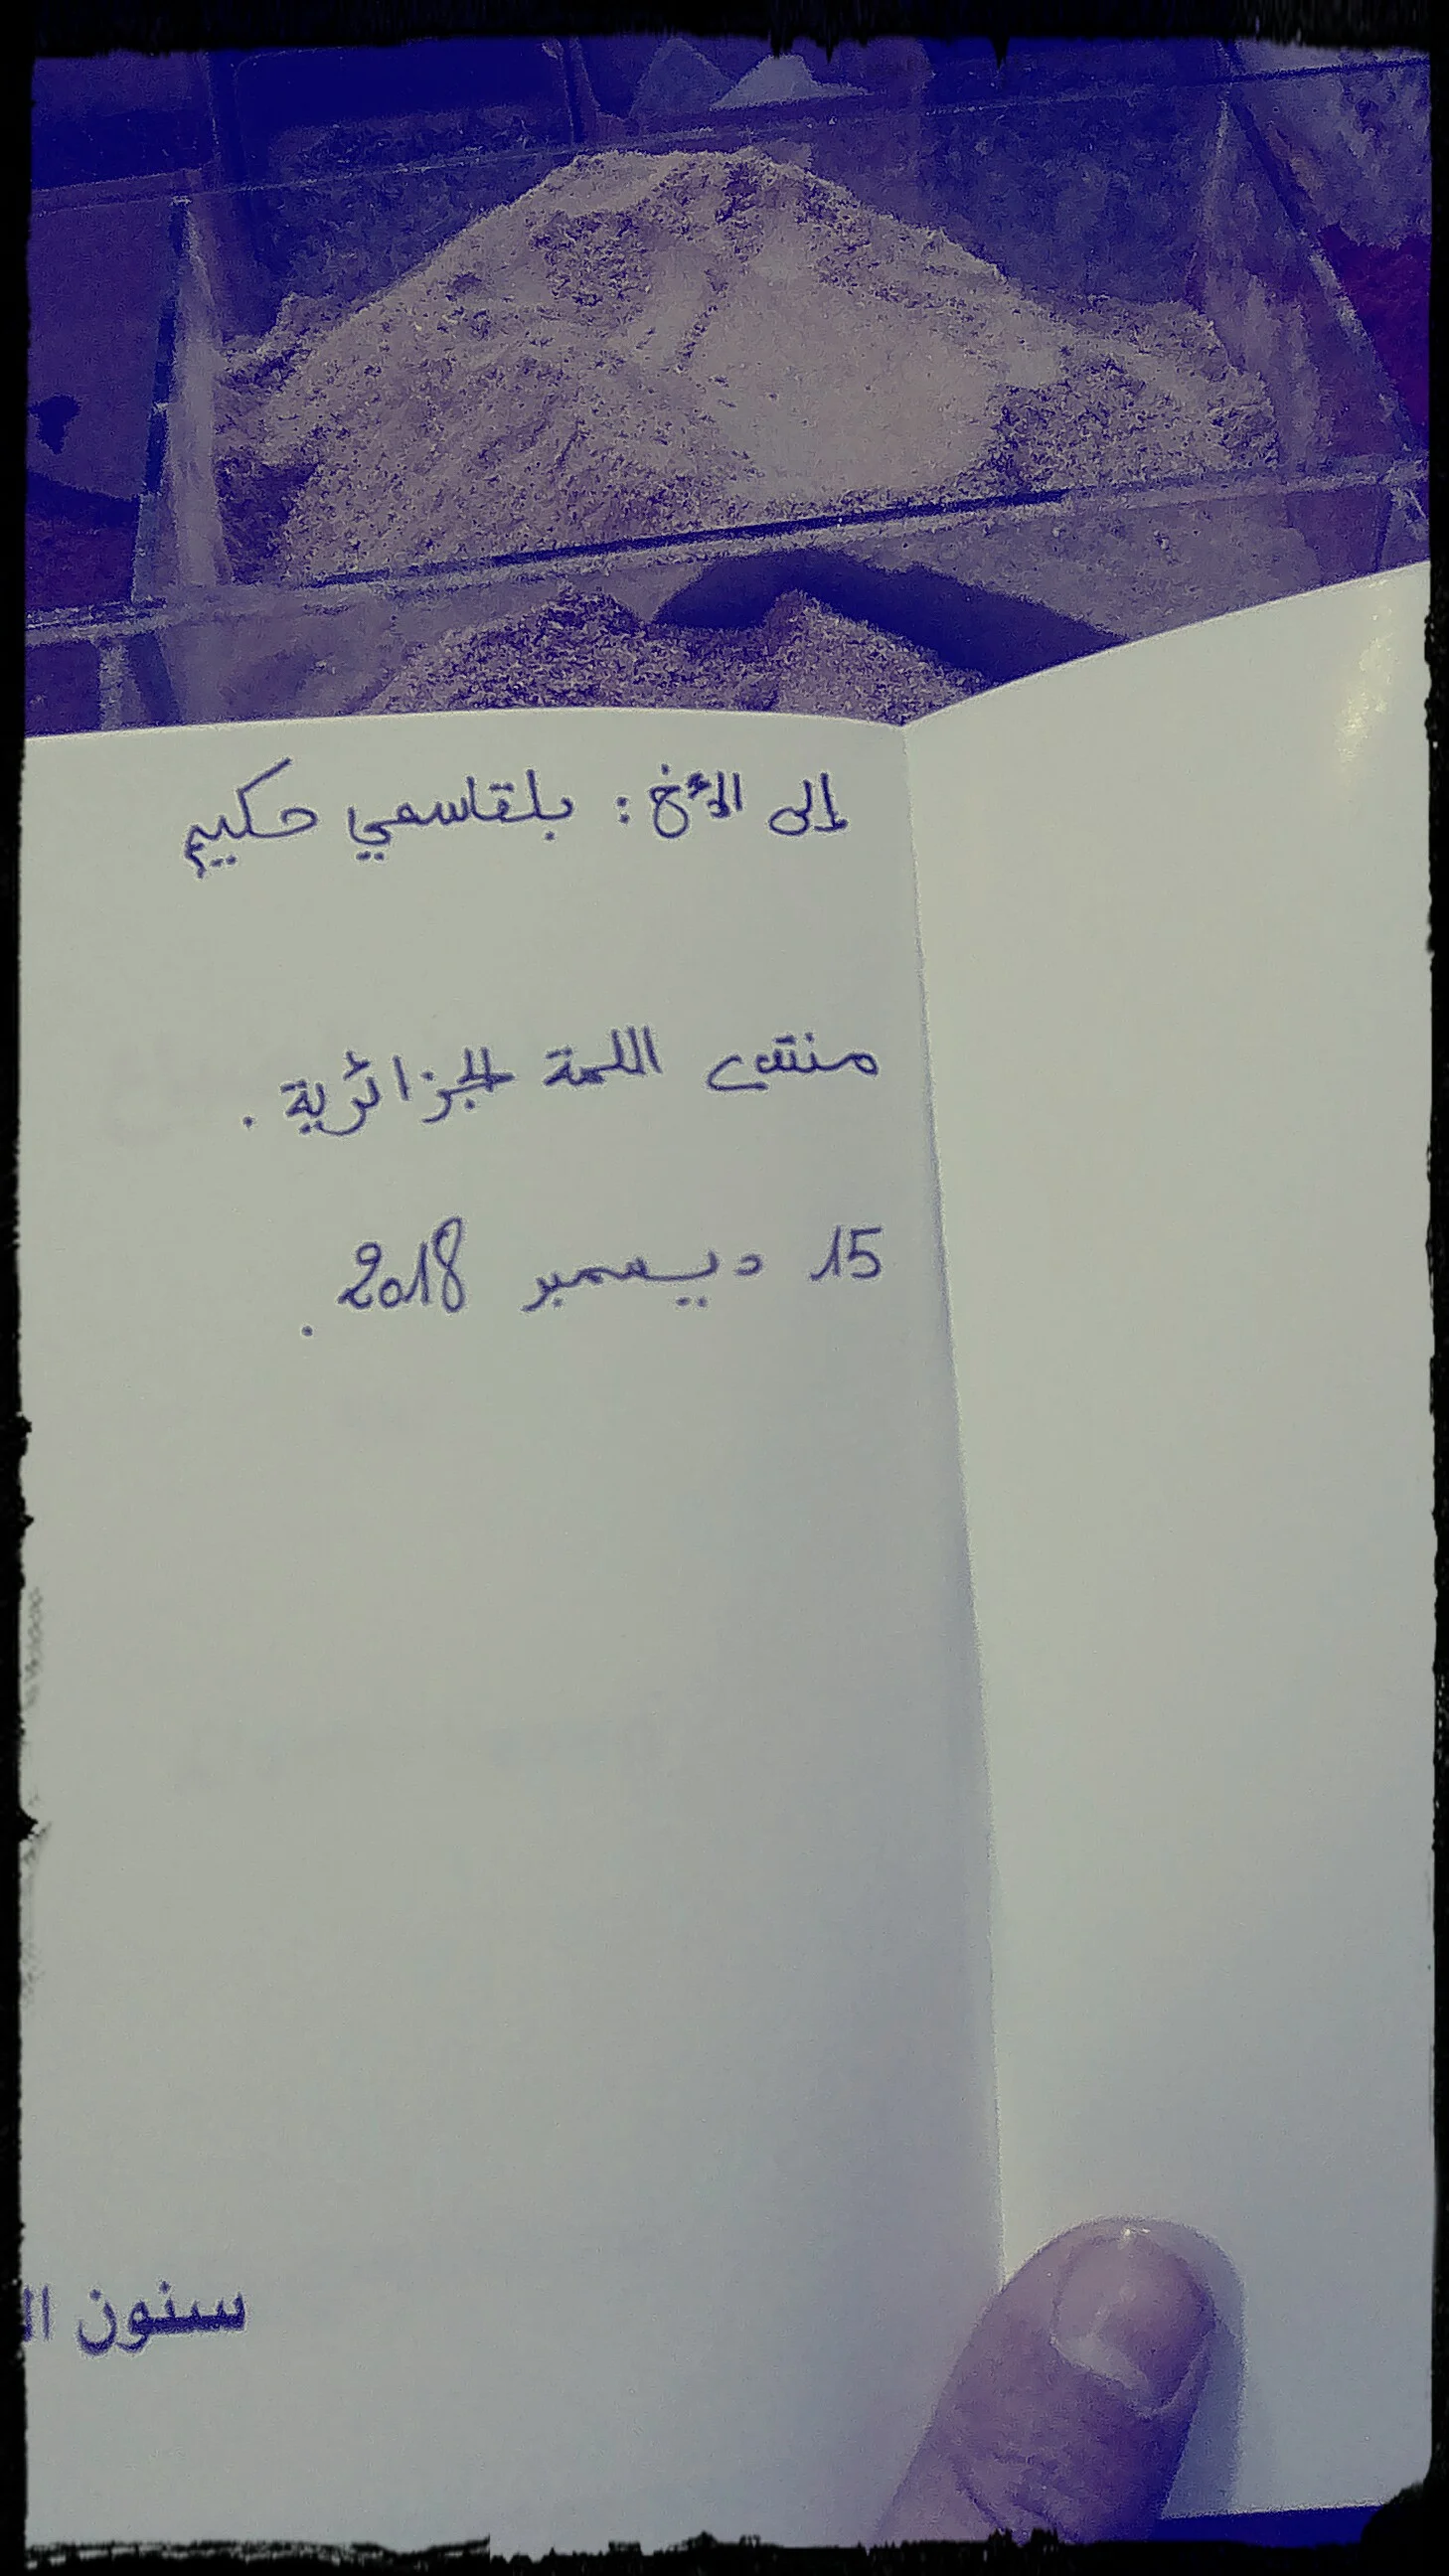 إلى الأخ : بلقاسمي حكيم
منتدى اللمة الجزائرية .
15 ديسمبر 2018 .
سنون ال